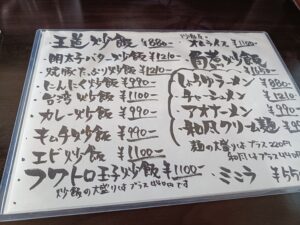 王道炒飯 ¥880-
明太子バター炒飯 ¥1210-
焼豚たっぷり炒飯 ¥1210-
にんにく炒飯 ¥990-
台湾炒飯 ¥1100-
カレー炒飯 ¥990-
キムチ炒飯 ¥990-
エビ炒飯 ¥1100-
フワトロ玉子炒飯 ¥1100-
炒飯の大盛りはプラス440円です
オムライス
炒飯
¥1650-
しょうゆラーメン ¥880
チャーシューメン
アオサラーメン
和風クリーム麺
麺の大盛はプラス220円
ミニラ ¥55